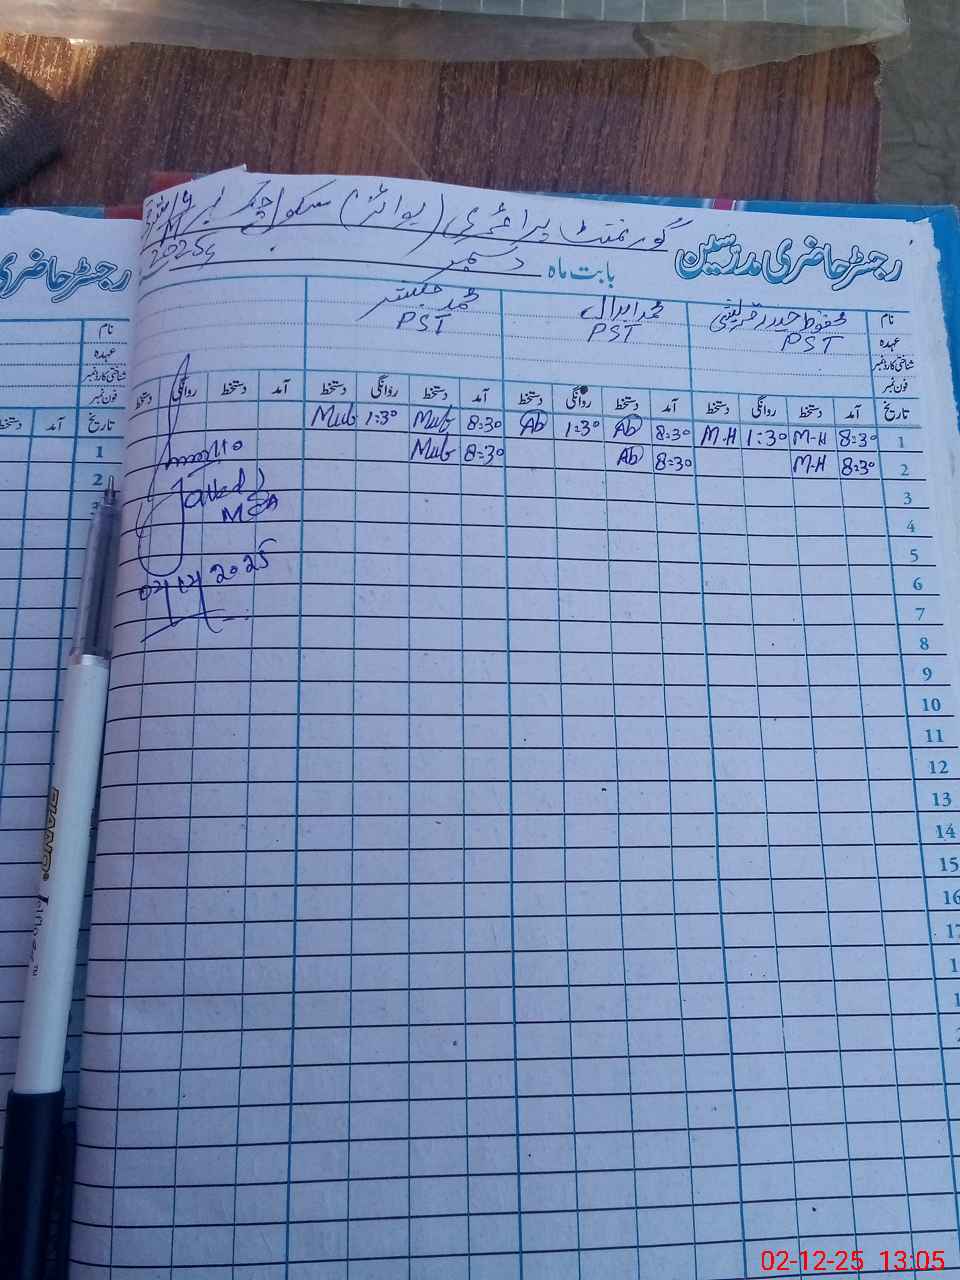 رجسٹر حاضری مدرسین گورنمنٹ پرائمری (بوائز) سکول چک نمبر
بابت ماہ دسمبر 2025ء
نام محفوظ حیدر قریشی محمد ابدال محمد مبشر
عہدہ PST PST PST
شناختی کارڈ نمبر
فون نمبر
تاریخ آمد دستخط روانگی دستخط آمد دستخط روانگی دستخط آمد دستخط روانگی دستخط آمد دستخط روانگی دستخط
1 8:30 M-H 1:30 M-H 8:30 Ab 1:30 Ab 8:30 Mub 1:30 Mub
2 8:30 M-H 8:30 Ab 8:30 Mub
3
4
5
6
7
8
9
10
11
12
13
14
15
16
MEA
02/12/2025
رجسٹر حاضری
نام
عہدہ
شناختی کارڈ نمبر
فون نمبر
تاریخ آمد دستخط
1
2
PIANO
02-12-25 13:05